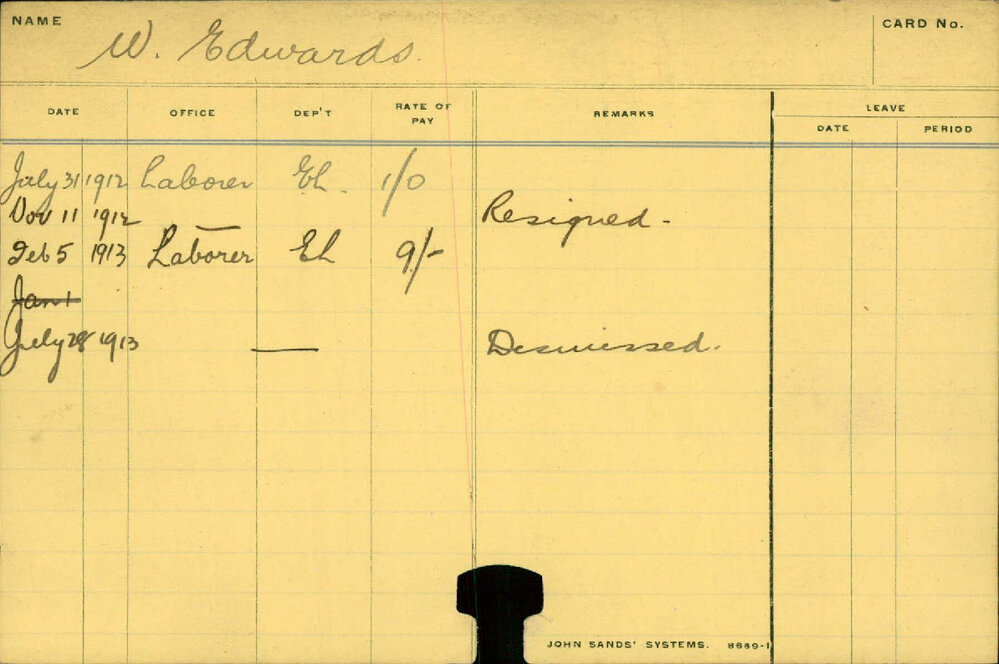 NAME W. Edwards. CARD No.
DATE OFFICE DEP'T RATE OF PAY REMARKS LEAVE
DATE PERIOD
July 31 1912 Laborer El. 1/0
Nov 11 1912 — Resigned -
Feb 5 1913 Laborer El 9/-
Jan 1
July 28 1913 — Dismissed.
JOHN SANDS' SYSTEMS. 8689-1